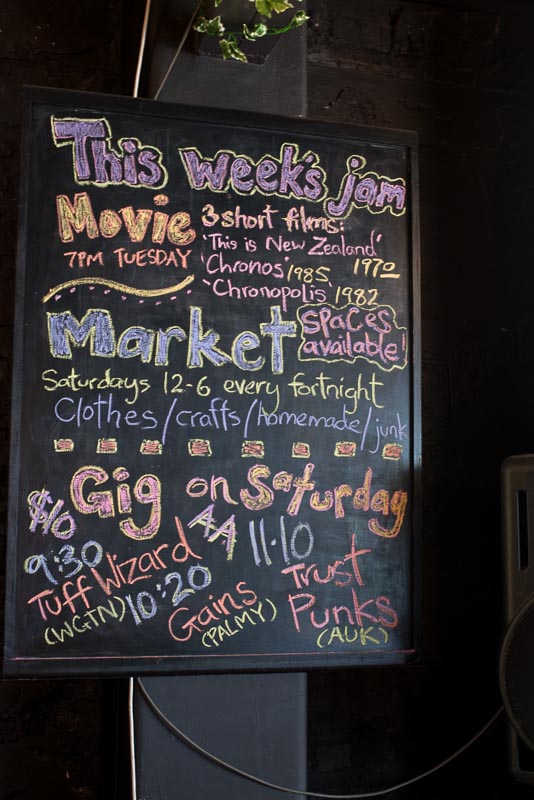 This week's jam
Movie
7PM TUESDAY
3 short films:
'This is New Zealand'
1970
'Chronos' 1985
'Chronopolis 1982
Market
spaces
available!
Saturdays 12-6 every fortnight
Clothes/crafts/homemade/junk
Gig on Saturday
$10
AA
9:30
Tuff Wizard
(WGTN)
10:20
Gains
(PALMY)
11.10
Trust
Punks
(AUK)